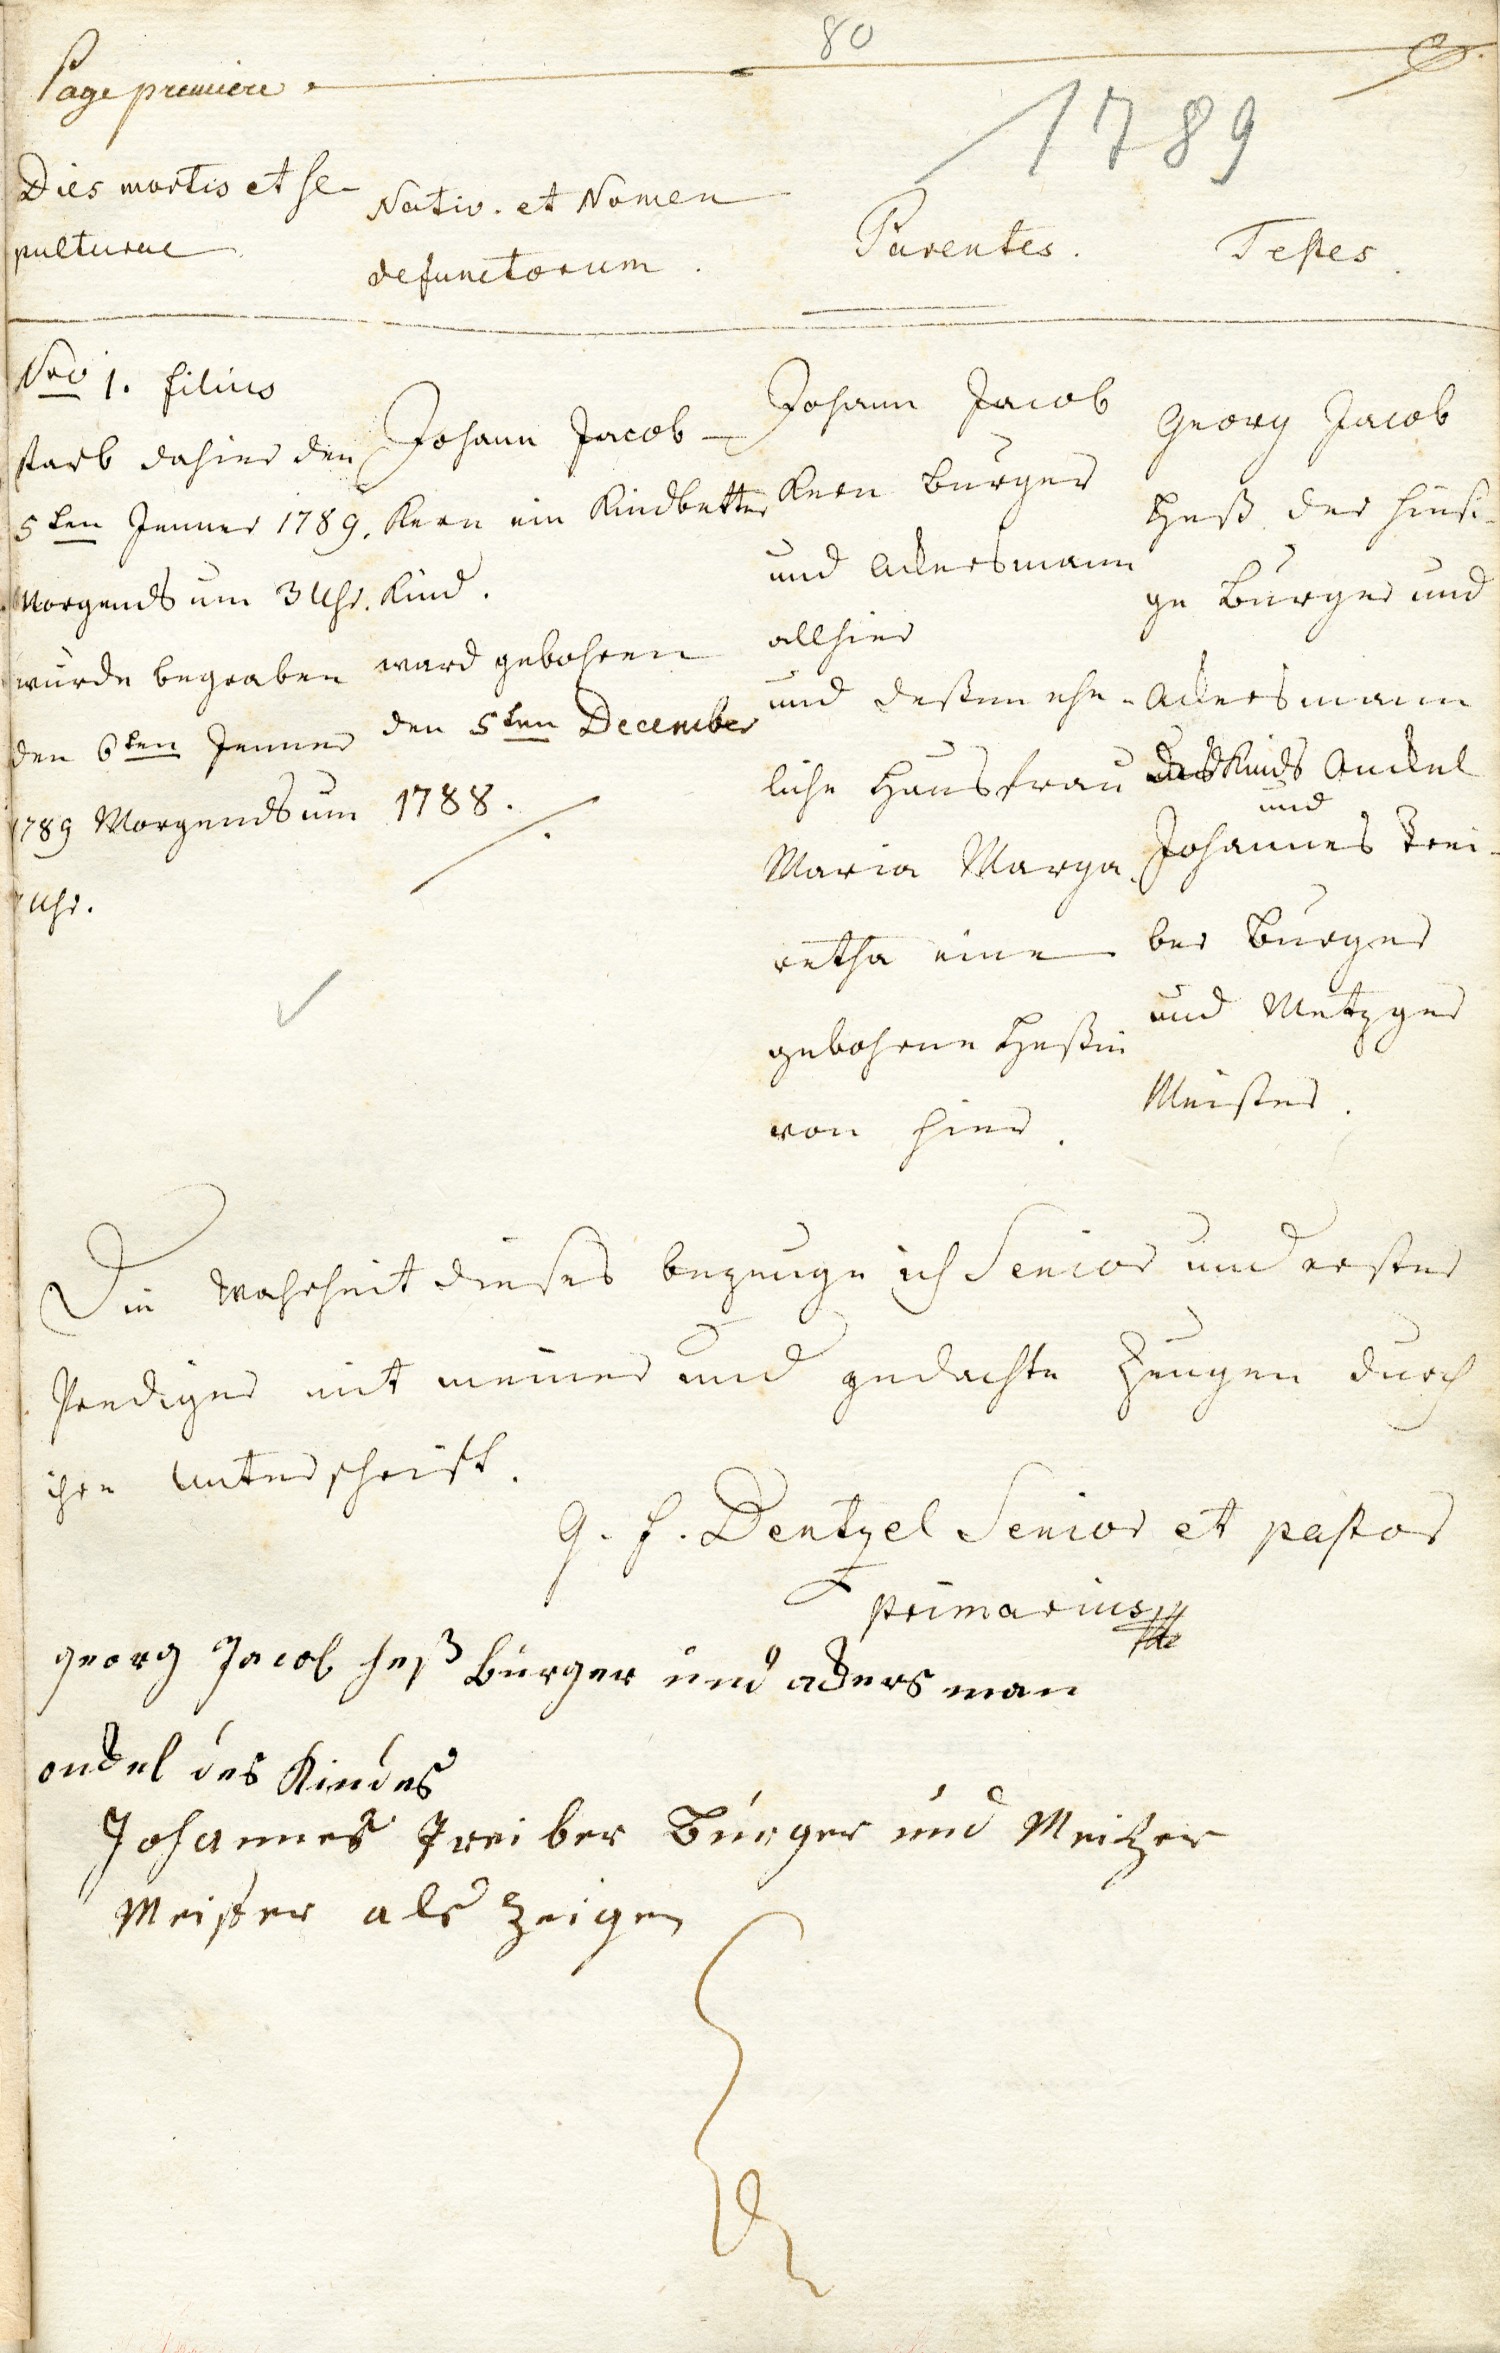 80
Page premiere
1789
Dies mortis et se-
pulturae
Nativ. et Nomen
defunctorum.
Parentes.
Testes.
Nro 1. filius
starb dahier den
5ten Jenner 1789.
Morgends um 3 Uhr.
wurde begraben
den 6ten Jenner
1789 Morgends um
Uhr.
Johann Jacob
Kern ein Kindbetter
Kind.
ward gebohren
den 5ten December
1788.
Johann Jacob
Kern burger
und Ackersmann
allhier
und deßen ehe-
liche Hausfrau
Maria Marga
retha eine
gebohrne Heßin
von hier.
Georg Jacob
Heß der hiesi-
ge burger und
Ackersmann
des Kinds Onckel
und
Johannes Trei-
ber Burger
und Metzger
Meister.
Die Wahrheit dieses bezeuge ich Senior und erster
Prediger mit meiner und gedachte Zeugen durch
ihre Unterschrift.
G. F. Dentzel Senior et pastor
primarius
georg Jacob heß bürger und ackers man
onckel des Kindes
Johannes Treiber Bürger und Meitzer
Meister als Zeigen